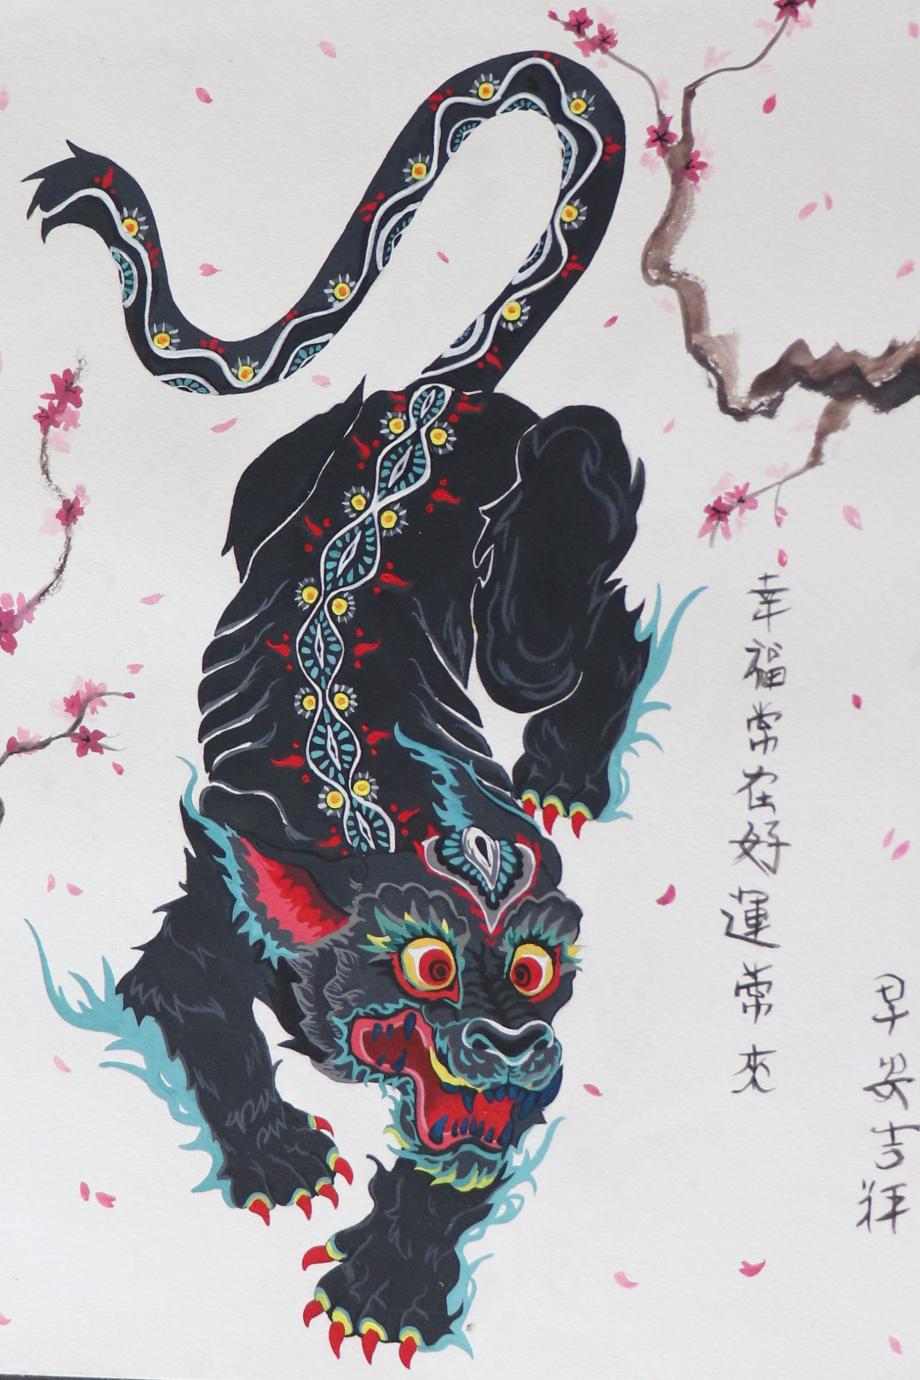 早安吉祥
幸福常在好運常來